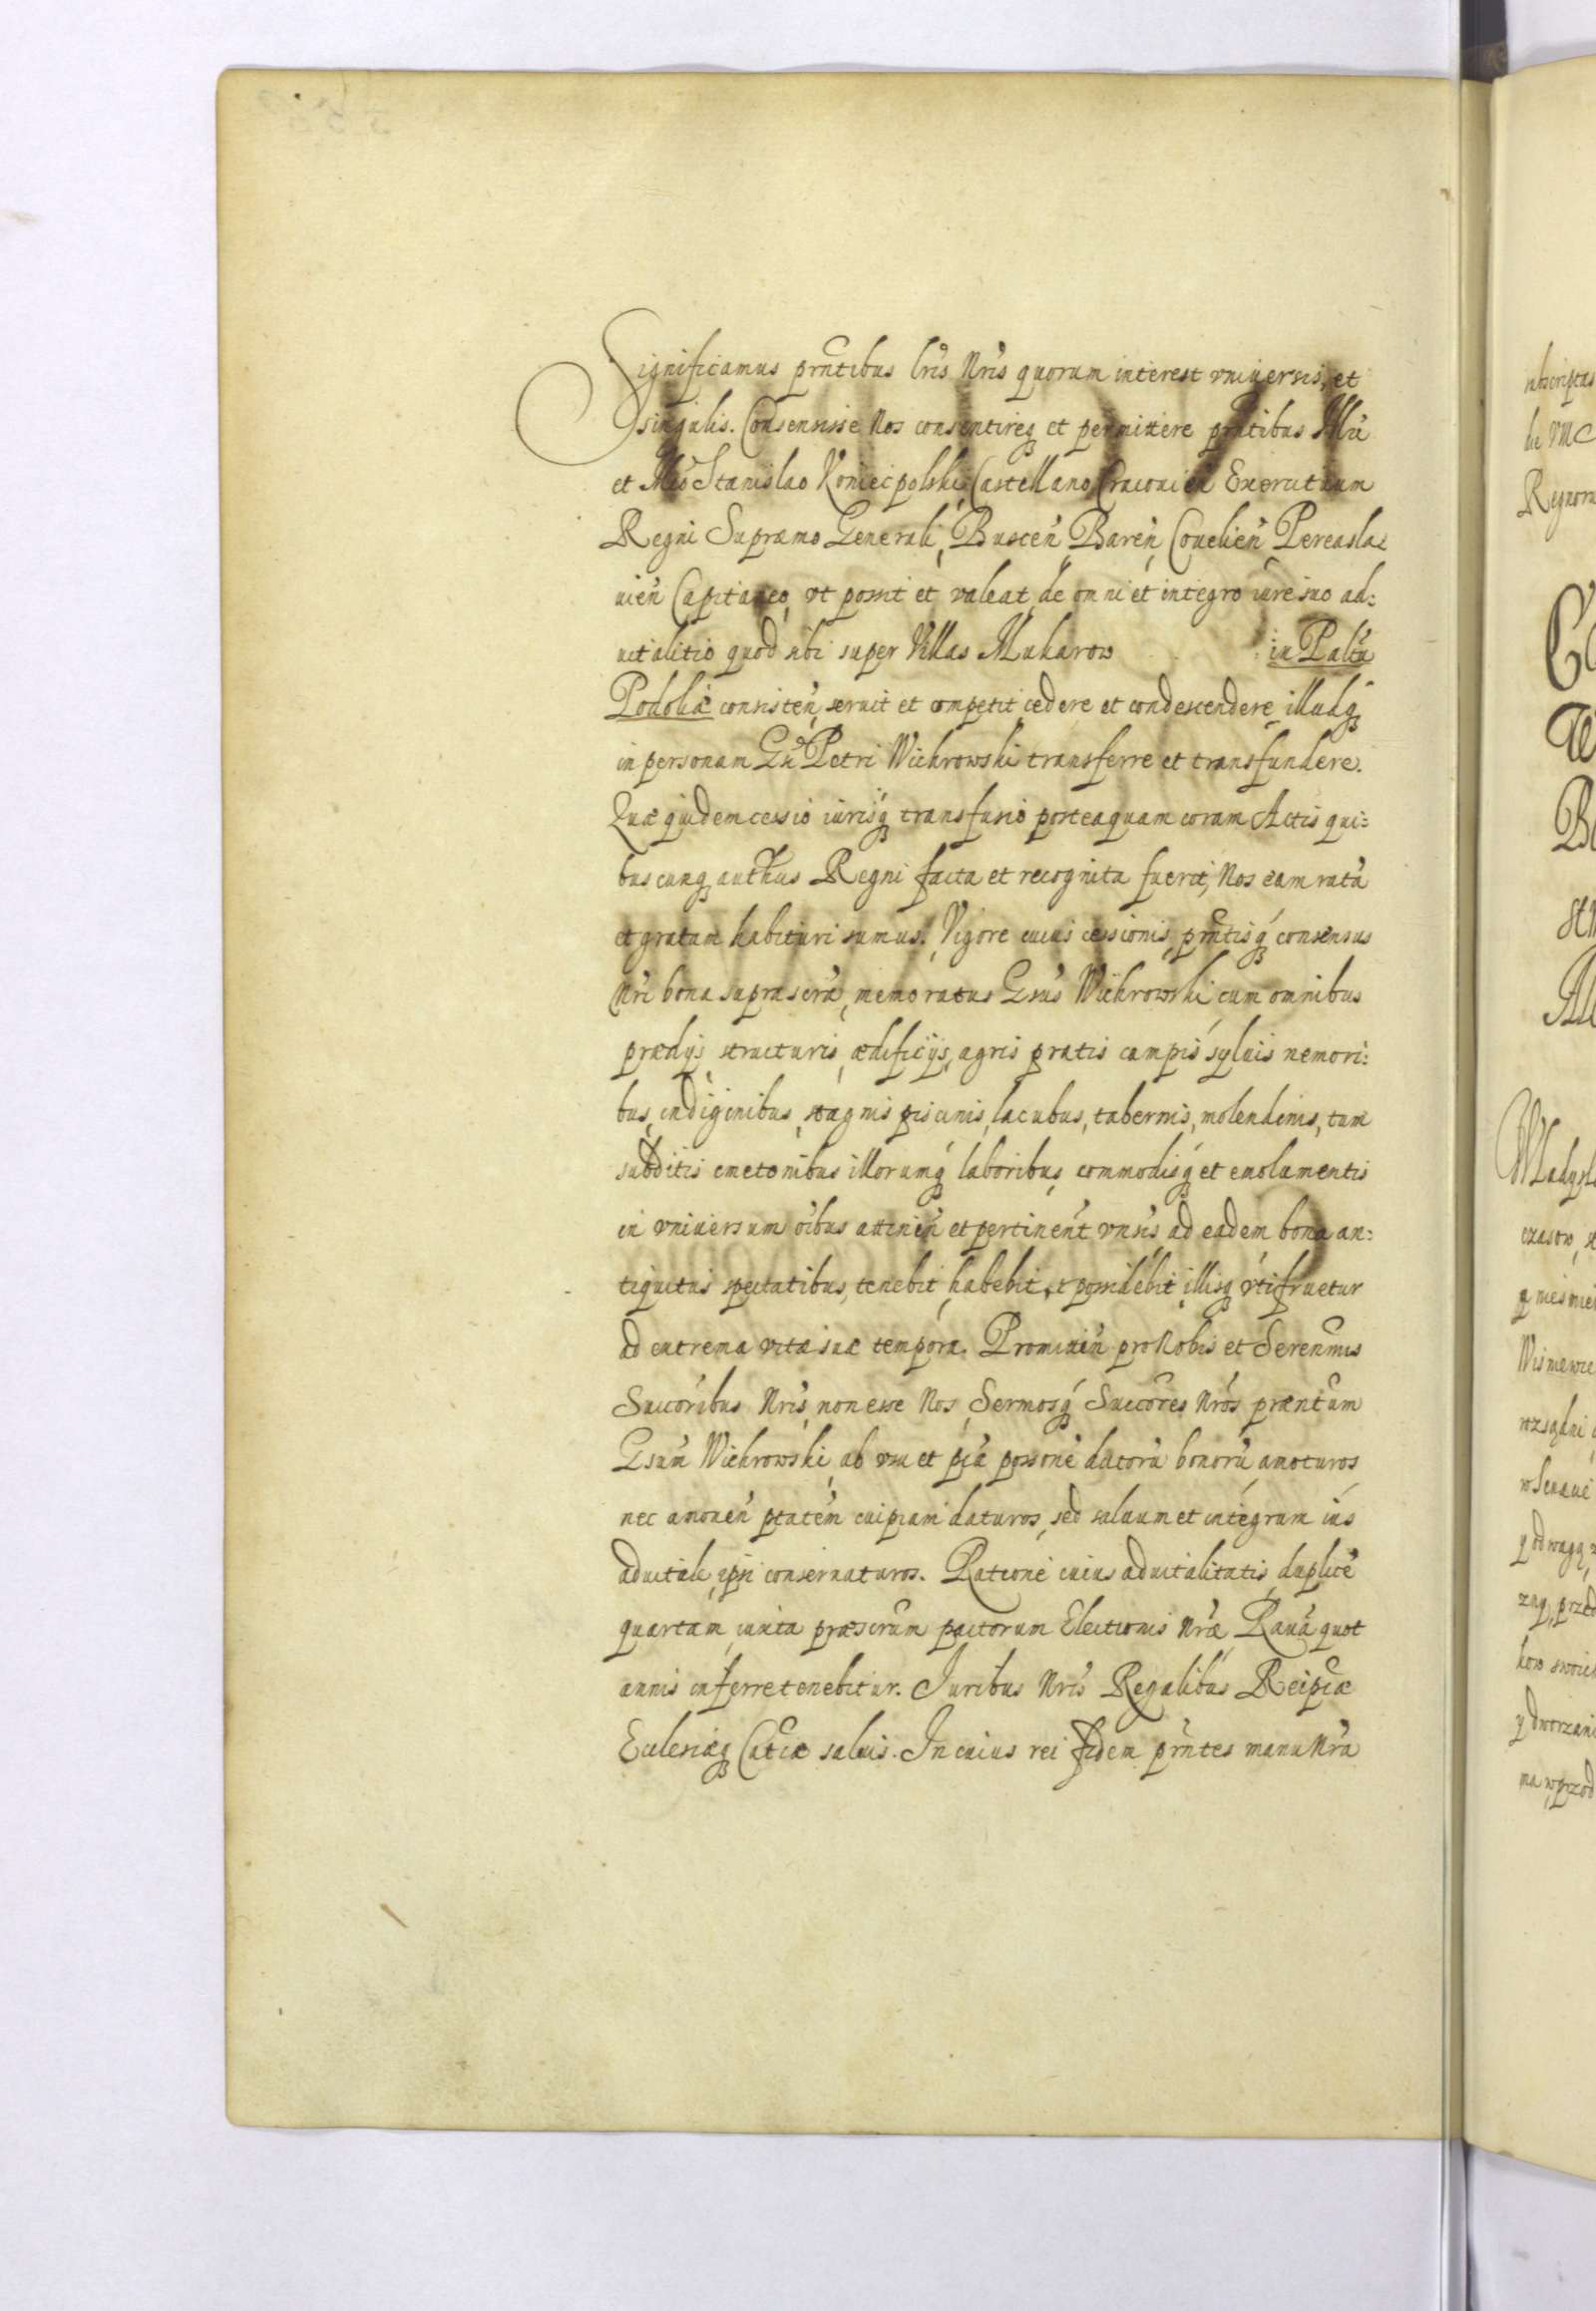 Significamus prñtibus lris Nris quorum interest vniuersis, et
singulis. Consensisse Nos consentireq; et permittere prñtibus Illri
et Mco Stanislao Koniecpolski, Castellano Cracouien Exercituum
Regni Supremo Generali, Buscen, Baren, Couelien, Pereasla-
uien Capitaneo, vt possit et valeat de omni et integro iure suo ad:
uitalitio quod sibi super Villas Mukarow in Paltũ
Podoliæ consisten, seruit et competit, cedere et condescendere, illudq;
in personam Gñ Petri Wichrowski transferre et transfundere.
Quæ quidem cessio iurisq; transfusio posteaquam coram Actis qui:
buscunq; authcis Regni facta et recognita fuerit, Nos eam ratã
et gratam habituri sumus. Vigore cuius cessionis, prñtisq; consensus
Nri bona suprascrã, memoratus Gsus Wichrowski cum omnibus
prædijs, structuris, ædificijs, agris pratis campis syluis nemori:
bus, indiginibus, stagnis piscinis, lacubus, tabernis, molendinis, tum
subditis cmetonibus illorumq; laboribus, commodisq; et emolumentis
in vniuersum oibus attinen et pertinent vnsis ad eadem bona an:
tiquitus spectatibus, tenebit, habebit, et possidebit, illisq; vtifruetur
ad extrema vitæ suæ tempora. Promitten pro Nobis et Serenmis
Succoribus Nris, non esse Nos, Sermosq; Succores Nros præntem
Gsum Wichrowski, ab vsu et pcã possone dictorũ bonorũ, amoturos
nec amouen ptatem cuipiam daturos, sed saluum et integrum ius
aduitale, ipsi conseruaturos. Ratione cuius aduitalitatis, duplicẽ
quartam, iuxta præscrum pactorum Electionis Nræ, Rauã quot
annis inferre tenebitur. Juribus Nris Regalibus Reipcæ
Ecclesiæq; Catcæ saluis. In cuius rei fidem prñtes manu Nrã